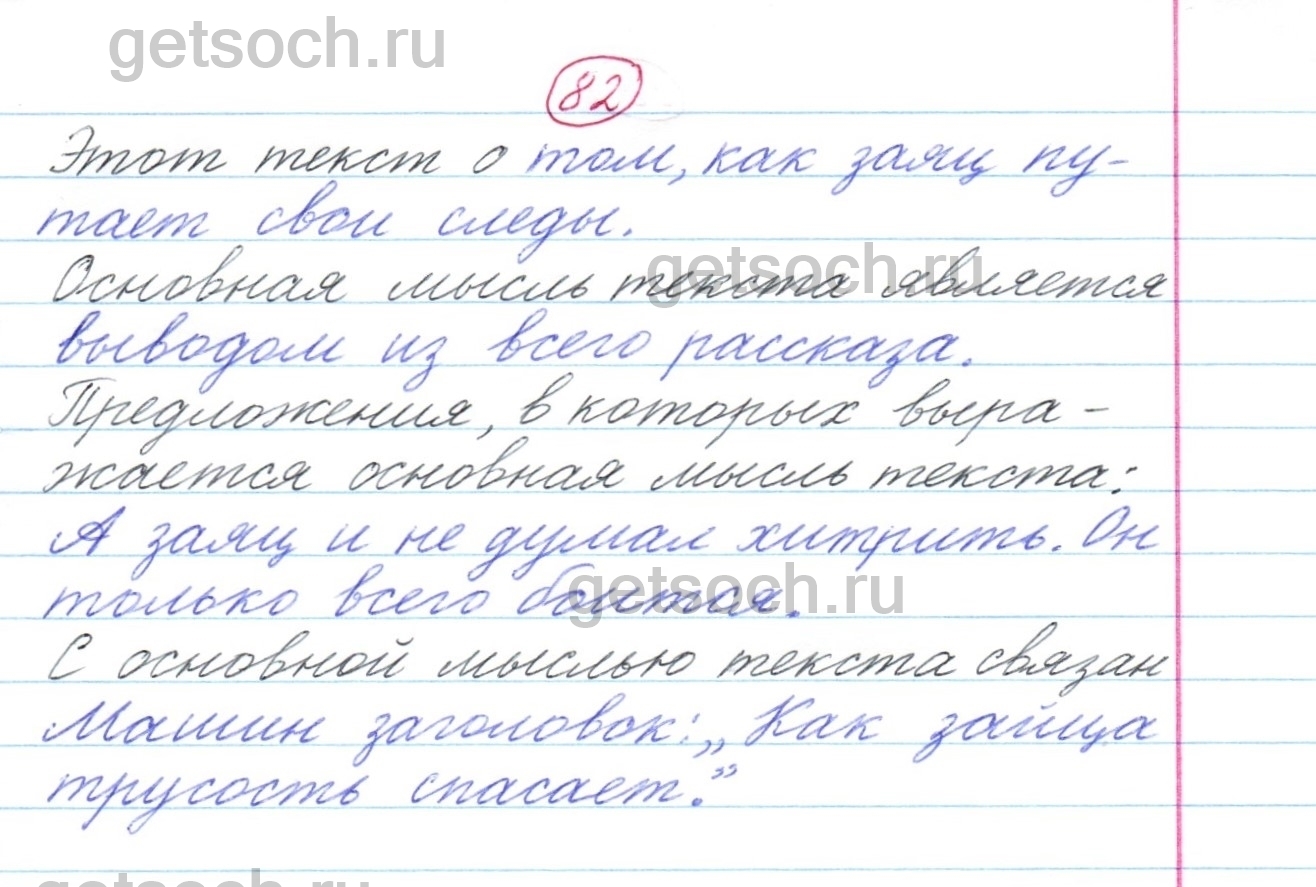 getsoch.ru
82
Этот текст о том, как заяц пу-
тает свои следы.
getsoch.ru
Основная мысль текста является
выводом из всего рассказа.
Предложения, в которых выра-
жается основная мысль текста:
А заяц и не думал хитрить. Он
только всего боится.
getsoch.ru
С основной мыслью текста связан
Машин заголовок: „Как зайца
трусость спасает."
getsoch.ru